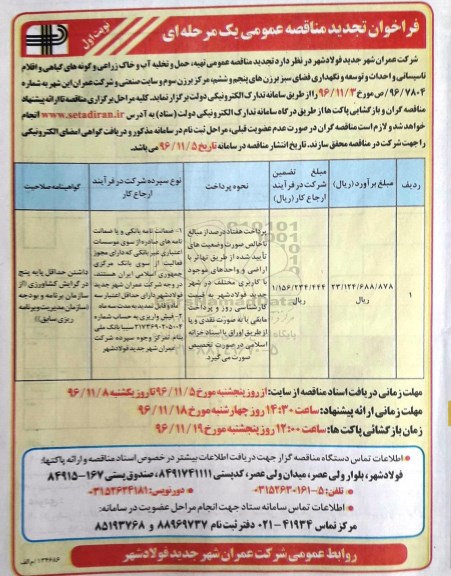 نوبت اول
فراخوان تجدید مناقصه عمومی یک مرحله ای
شرکت عمران شهر جدید فولادشهر در نظر دارد تجدید مناقصه عمومی تهیه، حمل و تخلیه آب و خاک زراعی و گونه های گیاهی و اقلام
تاسیساتی و احداث و توسعه و نگهداری فضای سبز برزن های پنجم و ششم، مرکز برزن سوم و سایت صنعتی و شرکت عمران این شهر به شماره
۹۶/۷۸۰۴/ص مورخ ۹۶/۱۱/۳ را از طریق سامانه تدارک الکترونیکی دولت برگزار نماید. کلیه مراحل برگزاری مناقصه تا ارائه پیشنهاد
مناقصه گران و بازگشایی پاکت ها از طریق درگاه سامانه تدارک الکترونیکی دولت (ستاد) به آدرس www.setadiran.ir انجام
خواهد شد و لازم است مناقصه گران در صورت عدم عضویت قبلی، مراحل ثبت نام در سامانه مذکور و دریافت گواهی امضای الکترونیکی
را جهت شرکت در مناقصه محقق سازند. تاریخ انتشار مناقصه در سامانه تاریخ ۹۶/۱۱/۵ می باشد.
ردیف
مبلغ برآورد (ریال)
مبلغ تضمین
شرکت در فرآیند
ارجاع کار (ریال)
نحوه پرداخت
نوع سپرده شرکت در فرآیند
ارجاع کار
گواهینامه صلاحیت
۱
۲۳/۱۲۴/۶۸۸/۸۷۸
ریال
۱/۱۵۶/۲۳۴/۴۴۴
ریال
پرداخت هفتاد درصد از مبالغ
ناخالص صورت وضعیت های
تأیید شده از طریق تهاتر با
اراضی و واحدهای موجود
با کاربری مختلف در شهر
جدید فولادشهر به قیمت
کارشناسی روز و پرداخت
مابقی یا به صورت نقدی و یا
از طریق اوراق یا اسناد خزانه
اسلامی در صورت تخصیص
صورت می گیرد.
۱- ضمانت نامه بانکی و یا ضمانت
نامه های صادره از سوی موسسات
اعتباری غیربانکی که دارای مجوز
فعالیت از سوی بانک مرکزی
جمهوری اسلامی ایران هستند.
در وجه شرکت عمران شهر جدید
فولادشهر دارای حداقل اعتبار سه
ماه و قابل تمدید به مدت سه ماه
۲- فیش واریزی به حساب شماره
۲۱۷۳۶۹۰۲۰۵۰۰۴ سیبا بانک ملی
بنام تمرکز وجوه سپرده شرکت
عمران شهر جدید فولادشهر
داشتن حداقل پایه پنج
در گرایش کشاورزی (از
سازمان برنامه و بودجه
(سازمان مدیریت و برنامه
ریزی سابق)
مهلت زمانی دریافت اسناد مناقصه از سایت: از روز پنجشنبه مورخ ۹۶/۱۱/۵ تا روز یکشنبه ۹۶/۱۱/۸
مهلت زمانی ارائه پیشنهاد: ساعت ۱۴:۳۰ روز چهارشنبه مورخ ۹۶/۱۱/۱۸
زمان بازگشائی پاکت ها: ساعت ۱۲:۰۰ روز پنجشنبه مورخ ۹۶/۱۱/۱۹
• اطلاعات تماس دستگاه مناقصه گزار جهت دریافت اطلاعات بیشتر در خصوص اسناد مناقصه و ارائه پاکتها:
فولادشهر، بلوار ولی عصر، میدان ولی عصر، کدپستی ۸۴۹۱۷۴۱۱۱۱، صندوق پستی ۱۶۷-۸۴۹۱۵
• تلفن: ۵-۰۳۱۵۲۶۳۰۱۶۱ • دورنویس: ۰۳۱۵۲۶۲۴۱۸۱
• اطلاعات تماس سامانه ستاد جهت انجام مراحل عضویت در سامانه:
مرکز تماس ۴۱۹۳۴-۰۲۱ دفتر ثبت نام ۸۸۹۶۹۷۳۷ و ۸۵۱۹۳۷۶۸
روابط عمومی شرکت عمران شهر جدید فولادشهر